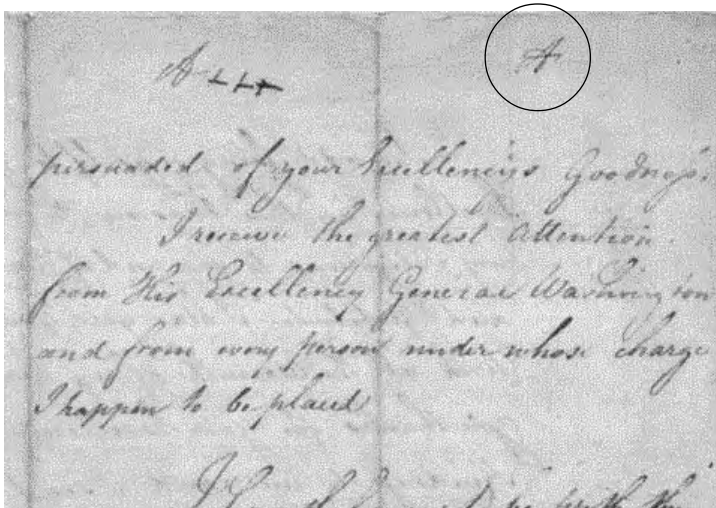 A A
persuaded of your Excellencies Goodness.
I receive the greatest Attention
from His Excellency General Washington
and from every person under whose charge
I happen to be placed